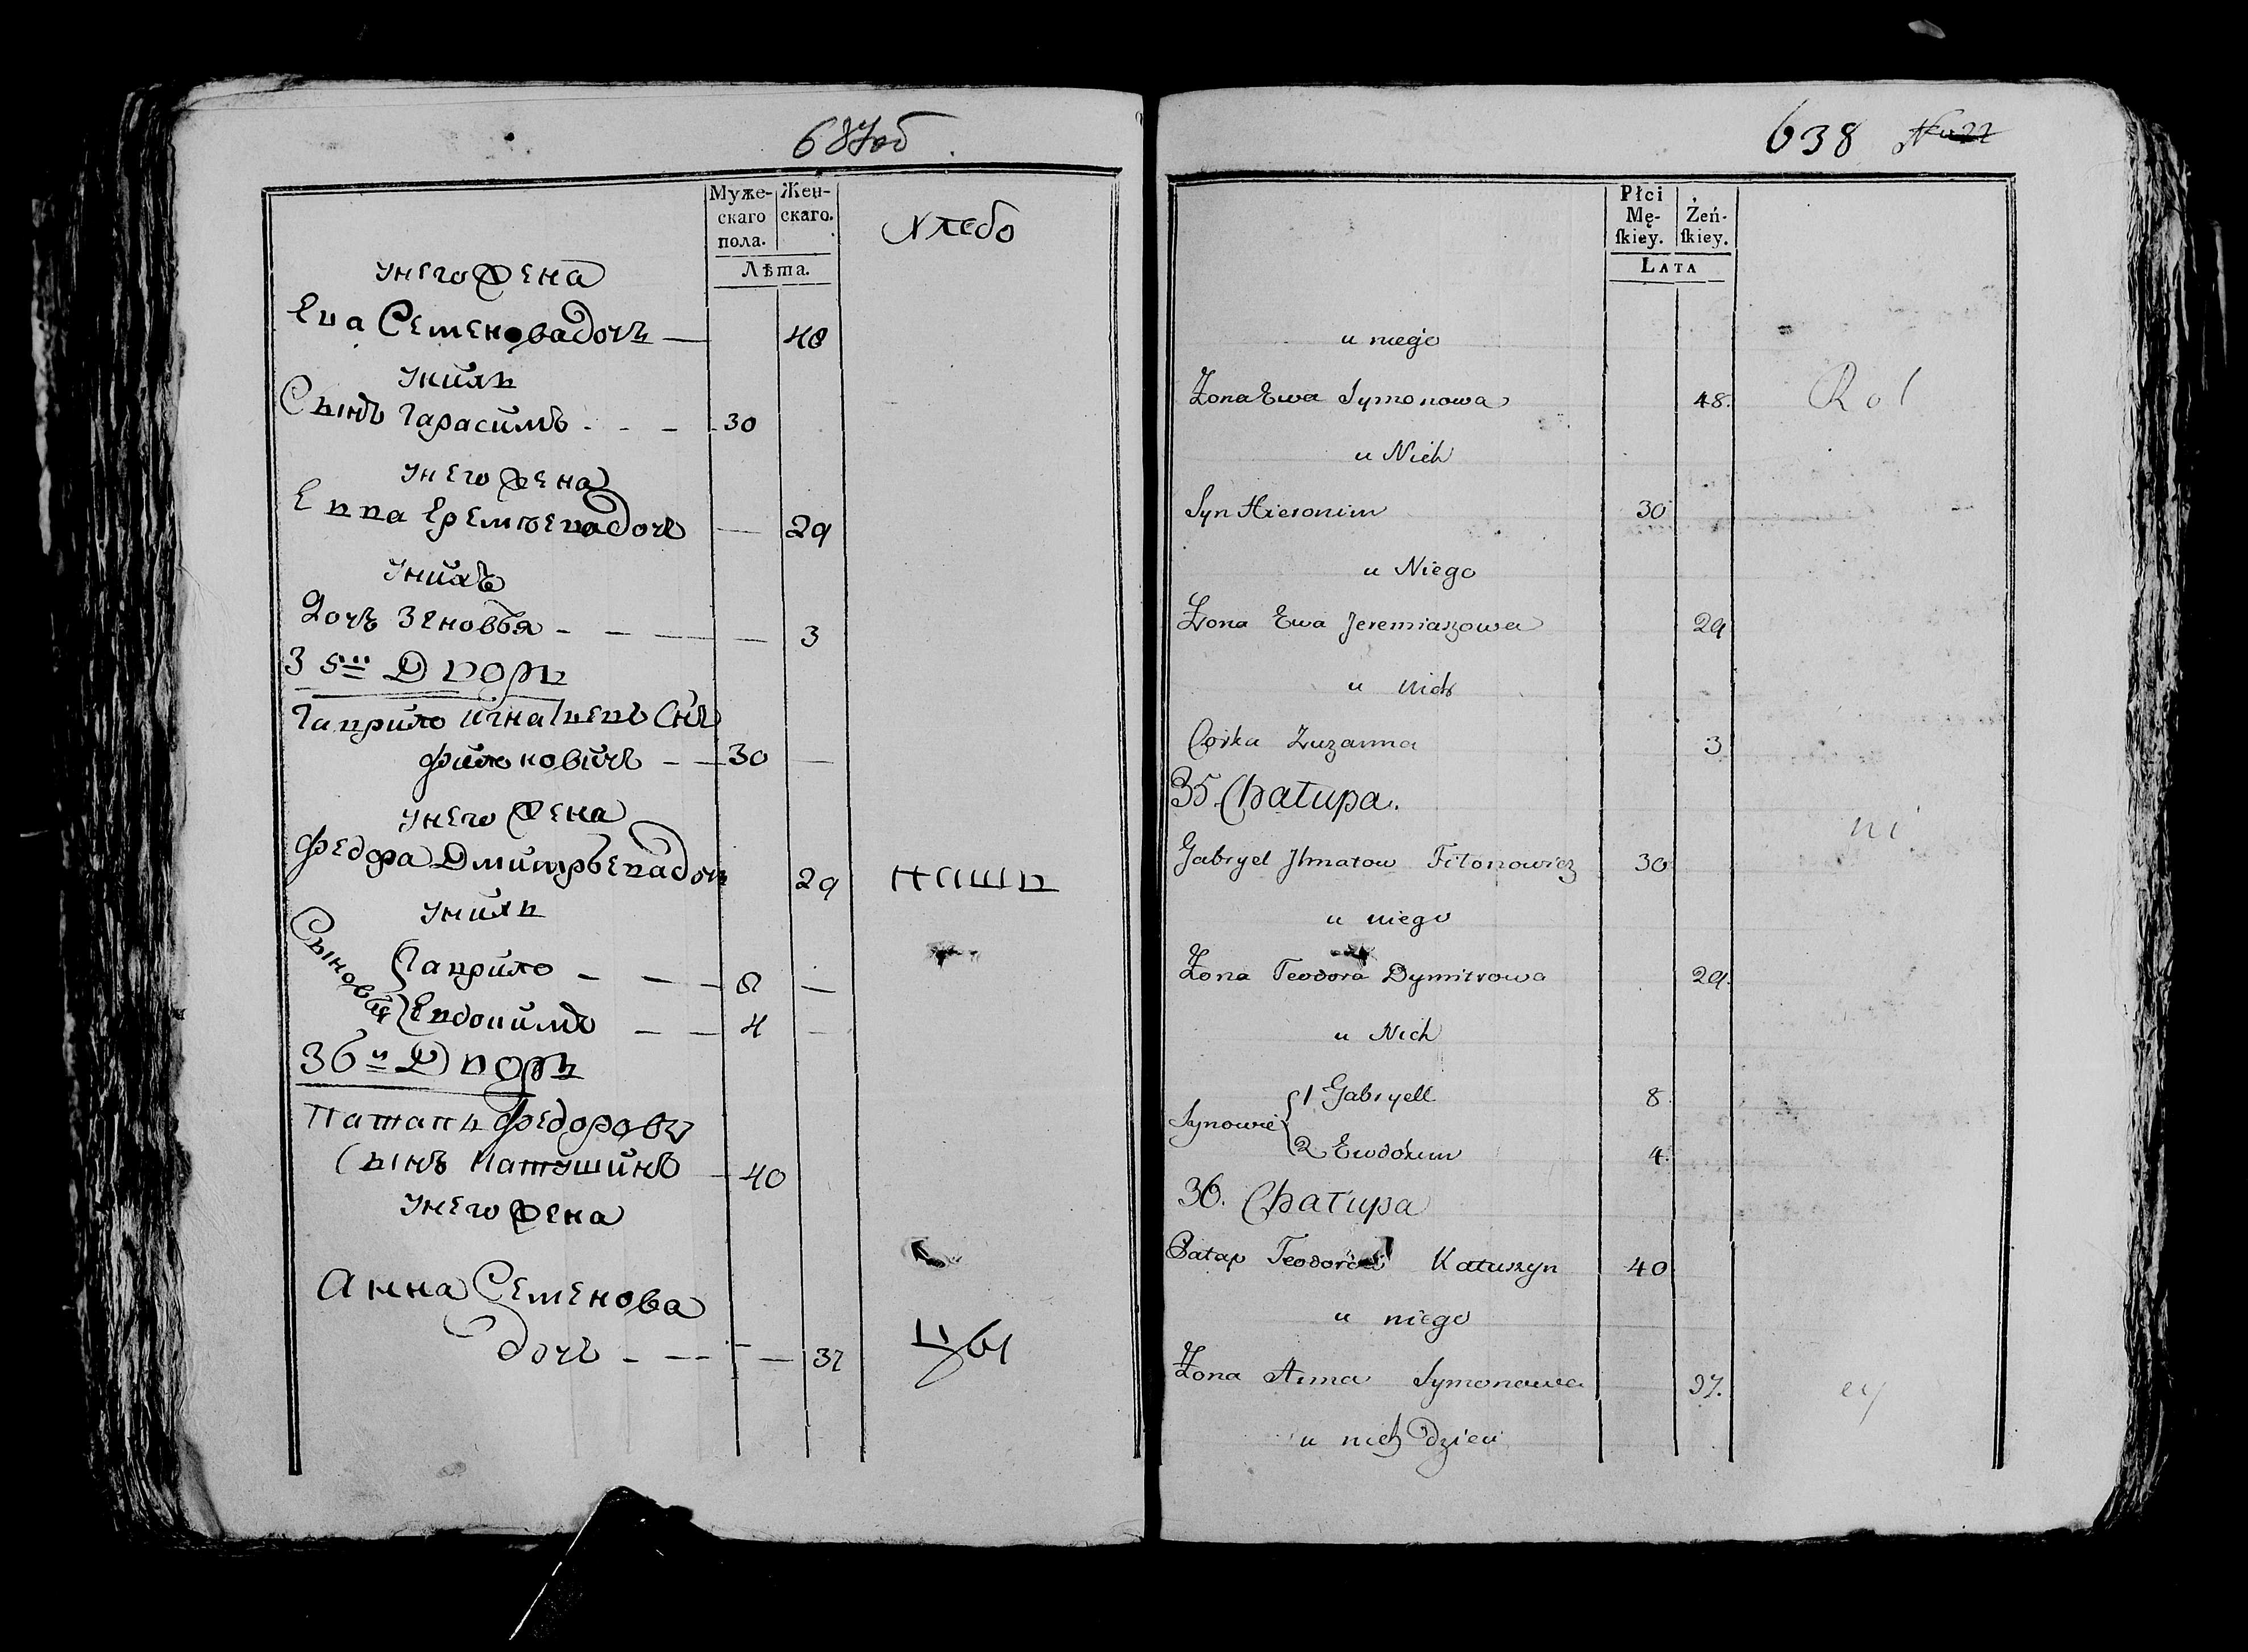 637об
Муже-
скаго
пола.
Жен-
скаго.
Лѣта.
Хлебо
унего жена
Ева Семеновадочь — 48
унихъ
Сынъ Гарасимъ - - - 30
унего жена
Евва Еремѣевадочь — 29
унихъ
Дочь Зеновья - - — — 3
35й Дворъ
Гаврило Игнатьевъ Снъ
Филоновичь — — 30 —
унего жена
Федора Дмитрьевадочь 29
пашь
унихъ
Сыновья
Гаврило — — — 8 —
Евдокимъ — — 4 —
36й Дворъ
Патапъ Федоровъ
Сынъ Катушинъ — 40
унего жена
Анна Семенова
дочь - -- — — 37
цы
638
Płci
Mę-
skiey.
Żeń-
skiey.
LATA
u niego
Żona Ewa Symonowa 48.
Rol
u Nich
Syn Hieronim 30
u Niego
Żona Ewa Jeremiaszowa 29
u nich
Corka Zuzanna 3
35. Chatupa.
ni
Gabryel Ihnatow Filonowicz 30
u niego
Żona Teodora Dymitrowa 29.
u Nich
Synowie
1 Gabryell 8
2 Ewdokim 4.
36. Chatupa
Patap Teodorow Katuszyn 40
u niego
Żona Anna Symonowa 37.
cy
u nich Dzieci